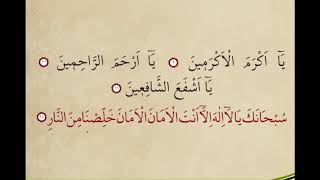 يَٓا اَكْرَمَ الْاَكْرَمِينَ ۞ يَٓا اَرْحَمَ الرَّاحِمِينَ ۞
يَٓا اَشْفَعَ الشَّافِعِينَ ۞
سُبْحَانَكَ يَالَٓا اِلٰهَ اِلَّٓا اَنْتَ الْاَمَانَ الْاَمَانَ خَلِّصْنَا مِنَ النَّارِ ۞